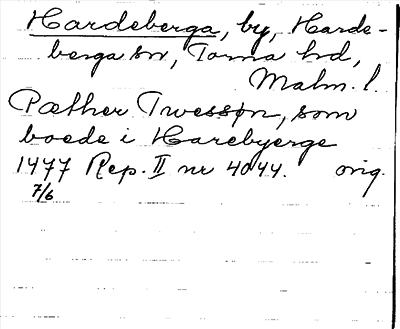 Hardeberga, by, Harde-
berga sn, Torna hd,
Malm. l.
Pæther Twessøn, som
boede i Harebyerge
1477 Rep. II nr 4044. orig.
7/6